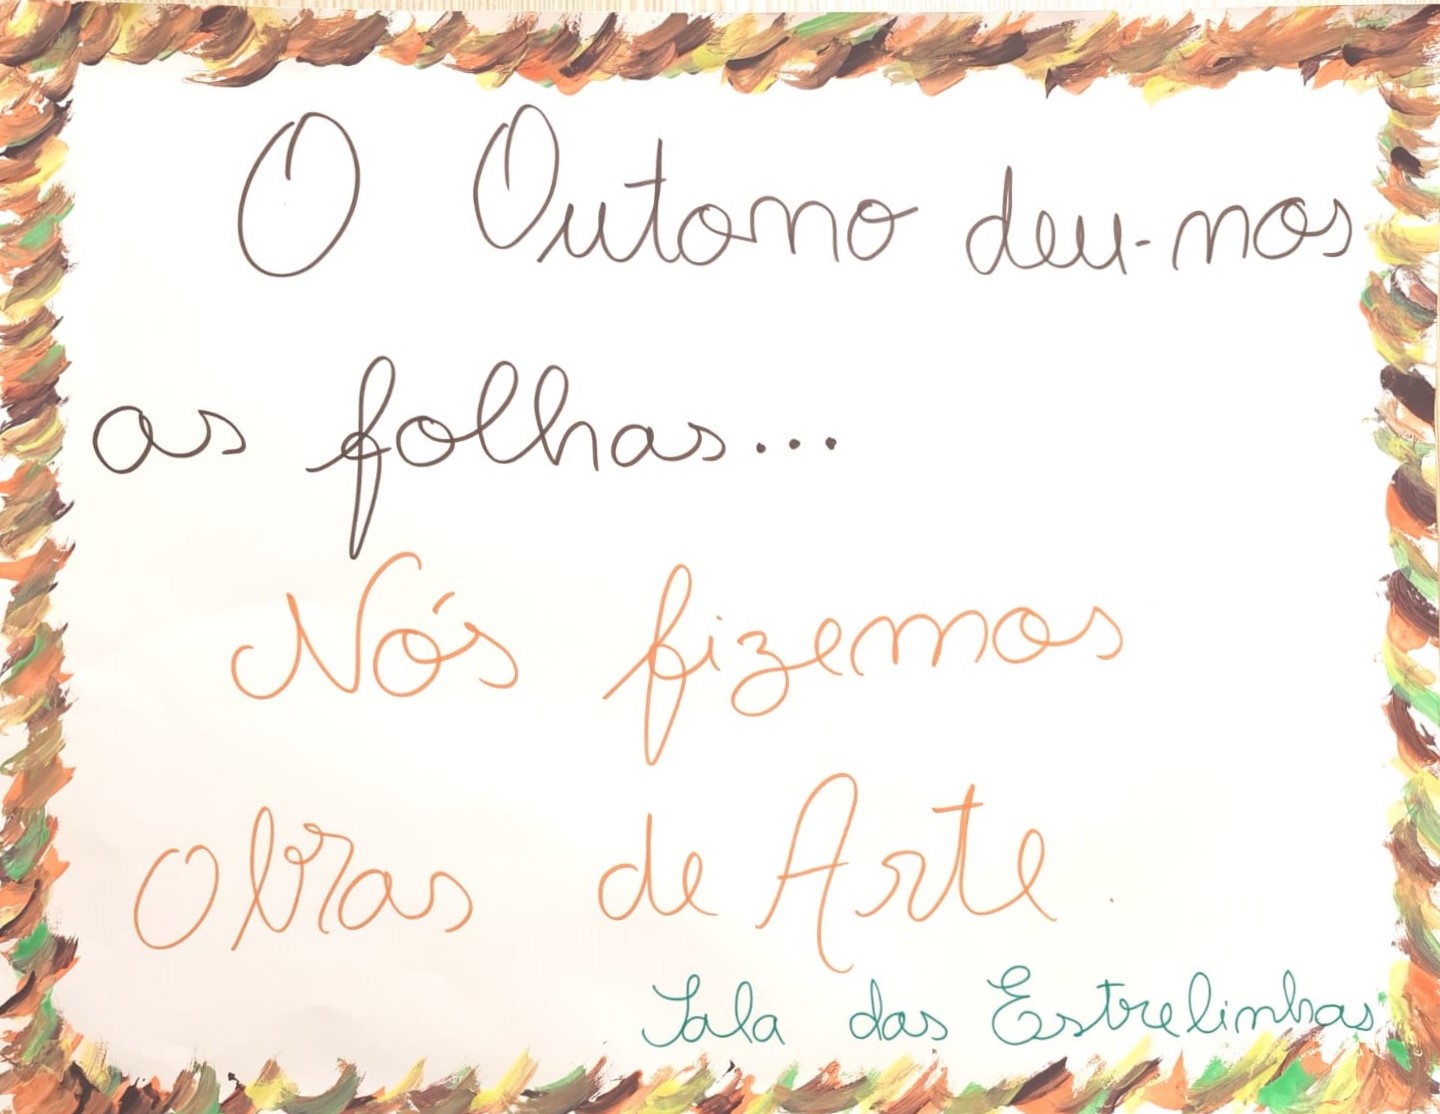 O Outono deu-nos
as folhas...
Nós fizemos
obras de Arte.
Sala das Estrelinhas